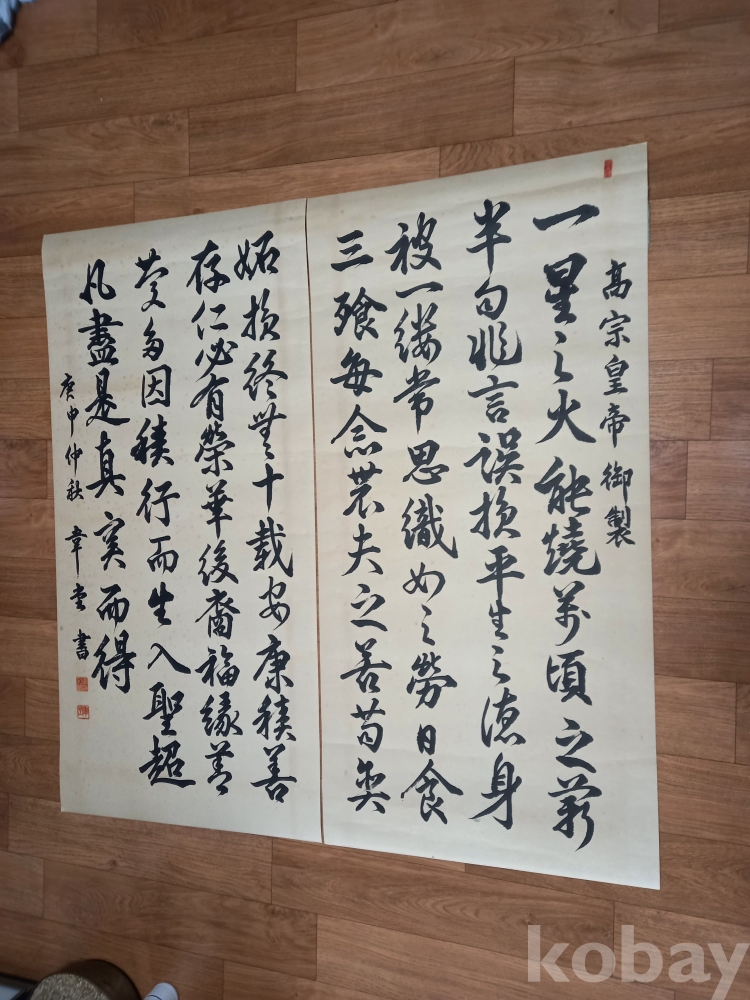 高宗皇帝御製
一星之火能燒萬頃之薪
半句非言誤損平生之德身
被一縷常思織女之勞日食
三飱每念農夫之苦苟貪
妬損終無十載安康積善
存仁必有榮華後裔福緣善
慶多因積行而生入聖超
凡盡是真實而得
庚申仲秋 堂書
kobay